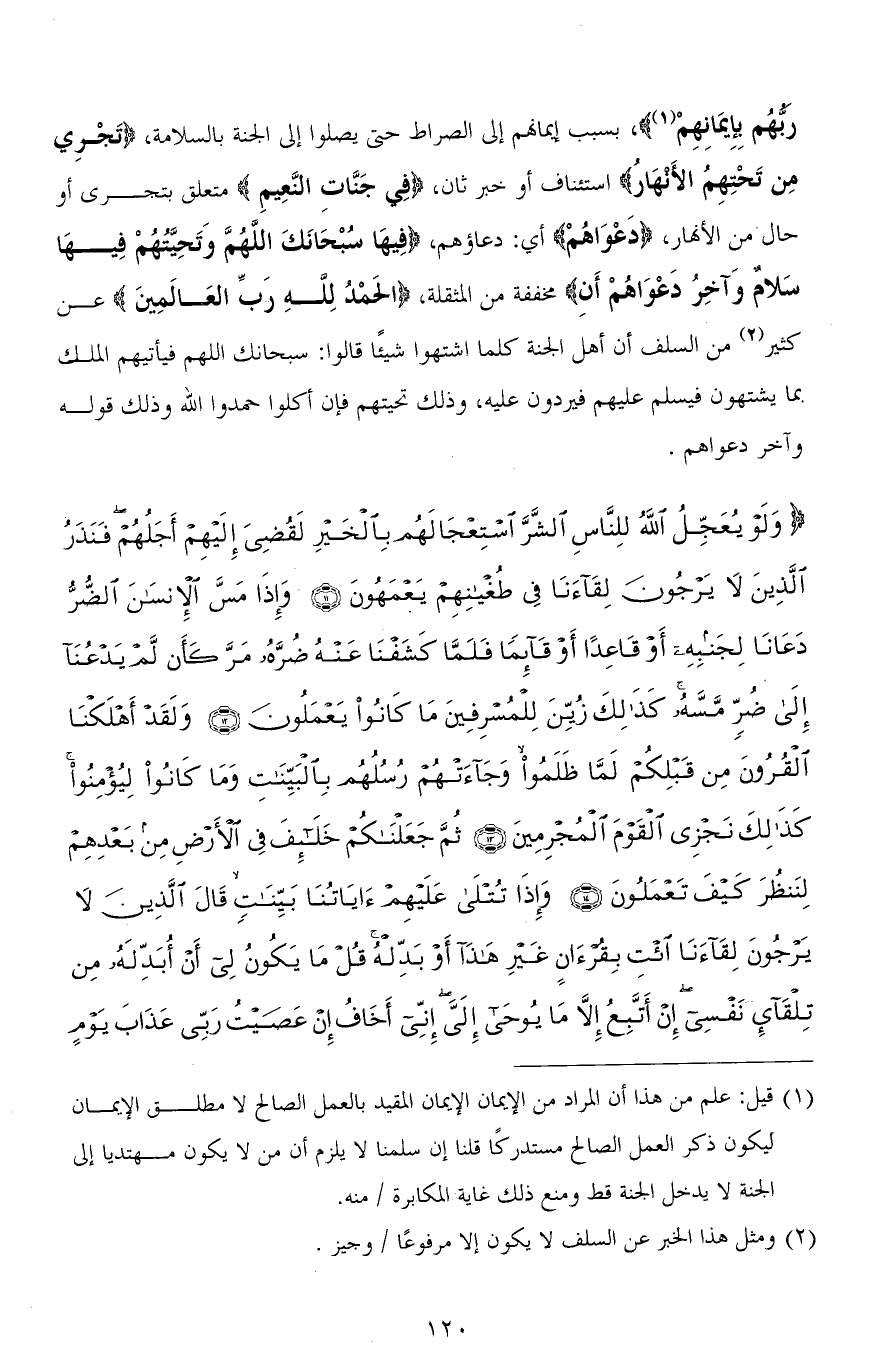 رَبُّهُم بِإِيمَانِهِمْ(١)﴾، بسبب إيمانهم إلى الصراط حتى يصلوا إلى الجنة بالسلامة، ﴿تَجْرِي
مِن تَحْتِهِمُ الأَنْهَارُ﴾ استئناف أو خبر ثان، ﴿فِي جَنَّاتِ النَّعِيمِ﴾ متعلق بتجرى أو
حال من الأنهار، ﴿دَعْوَاهُمْ﴾ أي: دعاؤهم، ﴿فِيهَا سُبْحَانَكَ اللَّهُمَّ وَتَحِيَّتُهُمْ فِيهَا
سَلامٌ وَآخِرُ دَعْوَاهُمْ أَنِ﴾ مخففة من المثقلة، ﴿الحَمْدُ لِلَّهِ رَبِّ العَالَمِينَ﴾ عن
كثير(٢) من السلف أن أهل الجنة كلما اشتهوا شيئًا قالوا: سبحانك اللهم فيأتيهم الملك
بما يشتهون فيسلم عليهم فيردون عليه، وذلك تحيتهم فإن أكلوا حمدوا الله وذلك قوله
وآخر دعواهم .
﴿ وَلَوْ يُعَجِّلُ ٱللَّهُ لِلنَّاسِ ٱلشَّرَّ ٱسْتِعْجَالَهُم بِٱلْخَيْرِ لَقُضِىَ إِلَيْهِمْ أَجَلُهُمْ ۖ فَنَذَرُ
ٱلَّذِينَ لَا يَرْجُونَ لِقَآءَنَا فِى طُغْيَٰنِهِمْ يَعْمَهُونَ ١١ وَإِذَا مَسَّ ٱلْإِنسَٰنَ ٱلضُّرُّ
دَعَانَا لِجَنۢبِهِۦٓ أَوْ قَاعِدًا أَوْ قَآئِمًا فَلَمَّا كَشَفْنَا عَنْهُ ضُرَّهُۥ مَرَّ كَأَن لَّمْ يَدْعُنَآ
إِلَىٰ ضُرٍّ مَّسَّهُۥ ۚ كَذَٰلِكَ زُيِّنَ لِلْمُسْرِفِينَ مَا كَانُوا۟ يَعْمَلُونَ ١٢ وَلَقَدْ أَهْلَكْنَا
ٱلْقُرُونَ مِن قَبْلِكُمْ لَمَّا ظَلَمُوا۟ ۙ وَجَآءَتْهُمْ رُسُلُهُم بِٱلْبَيِّنَٰتِ وَمَا كَانُوا۟ لِيُؤْمِنُوا۟ ۚ
كَذَٰلِكَ نَجْزِى ٱلْقَوْمَ ٱلْمُجْرِمِينَ ١٣ ثُمَّ جَعَلْنَٰكُمْ خَلَٰٓئِفَ فِى ٱلْأَرْضِ مِنۢ بَعْدِهِمْ
لِنَنظُرَ كَيْفَ تَعْمَلُونَ ١٤ وَإِذَا تُتْلَىٰ عَلَيْهِمْ ءَايَاتُنَا بَيِّنَٰتٍ ۙ قَالَ ٱلَّذِينَ لَا
يَرْجُونَ لِقَآءَنَا ٱئْتِ بِقُرْءَانٍ غَيْرِ هَٰذَآ أَوْ بَدِّلْهُ ۚ قُلْ مَا يَكُونُ لِىٓ أَنْ أُبَدِّلَهُۥ مِن
تِلْقَآئِ نَفْسِىٓ ۖ إِنْ أَتَّبِعُ إِلَّا مَا يُوحَىٰٓ إِلَىَّ ۖ إِنِّىٓ أَخَافُ إِنْ عَصَيْتُ رَبِّى عَذَابَ يَوْمٍ
(١) قيل: علم من هذا أن المراد من الإيمان الإيمان المقيد بالعمل الصالح لا مطلق الإيمان
ليكون ذكر العمل الصالح مستدركًا قلنا إن سلمنا لا يلزم أن من لا يكون مهتديا إلى
الجنة لا يدخل الجنة قط ومنع ذلك غاية المكابرة / منه.
(٢) ومثل هذا الخبر عن السلف لا يكون إلا مرفوعًا / وجيز .
١٢٠